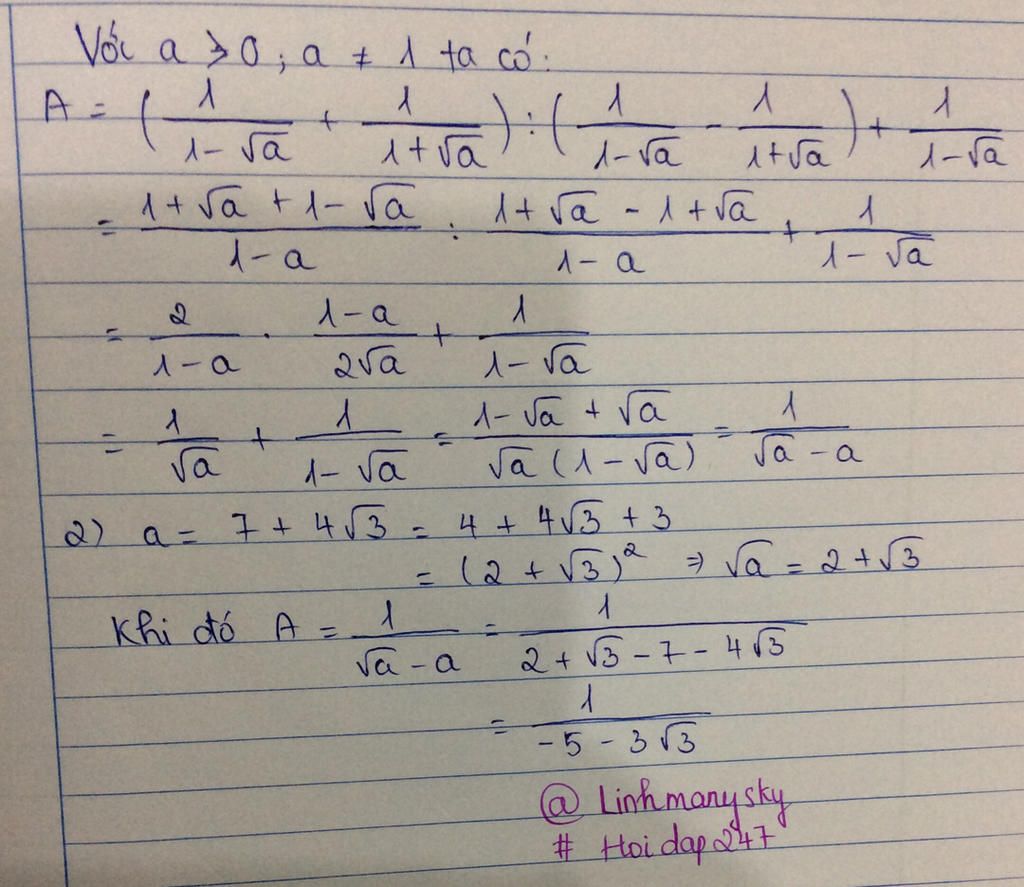 Với a ≥ 0 ; a ≠ 1 ta có:
A = ( 1/(1-√a) + 1/(1+√a) ) : ( 1/(1-√a) - 1/(1+√a) ) + 1/(1-√a)
= (1+√a + 1-√a)/(1-a) : (1+√a - 1+√a)/(1-a) + 1/(1-√a)
= 2/(1-a) . (1-a)/(2√a) + 1/(1-√a)
= 1/√a + 1/(1-√a) = (1-√a + √a)/(√a (1-√a)) = 1/(√a - a)
2) a = 7 + 4√3 = 4 + 4√3 + 3
= (2 + √3)² ⇒ √a = 2+√3
Khi đó A = 1/(√a - a) = 1/(2+√3 - 7 - 4√3)
= 1/(-5 - 3√3)
@ Linhmanysky
# Hoidap247